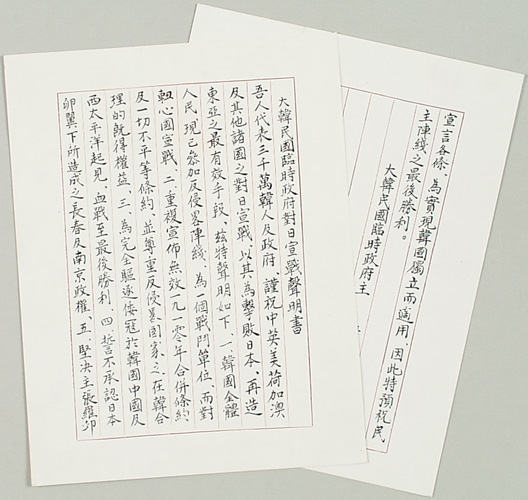 大韓民國臨時政府對日宣戰聲明書
吾人代表三千萬韓人及政府、謹祝中英美荷加澳
及其他諸國之對日宣戰、以其為擊敗日本、再造
東亞之最有效手段、玆特聲明如下、一、韓國全體
人民、現已參加反侵畧陣綫、為一個戰鬥單位、而對
軸心國宣戰、二、重複宣佈無效一九一零年合併條約、
及一切不平等條約、並尊重反侵畧國家之在韓合
理的既得權益、三、為完全驅逐倭寇於韓國中國及
西太平洋起見、血戰至最後勝利、四、誓不承認日本
卵翼下所造成之長春及南京政權、五、堅決主張羅邱
宣言各條、為實現韓國獨立而適用、因此特預祝民
主陣綫之最後勝利。
大韓民國臨時政府主